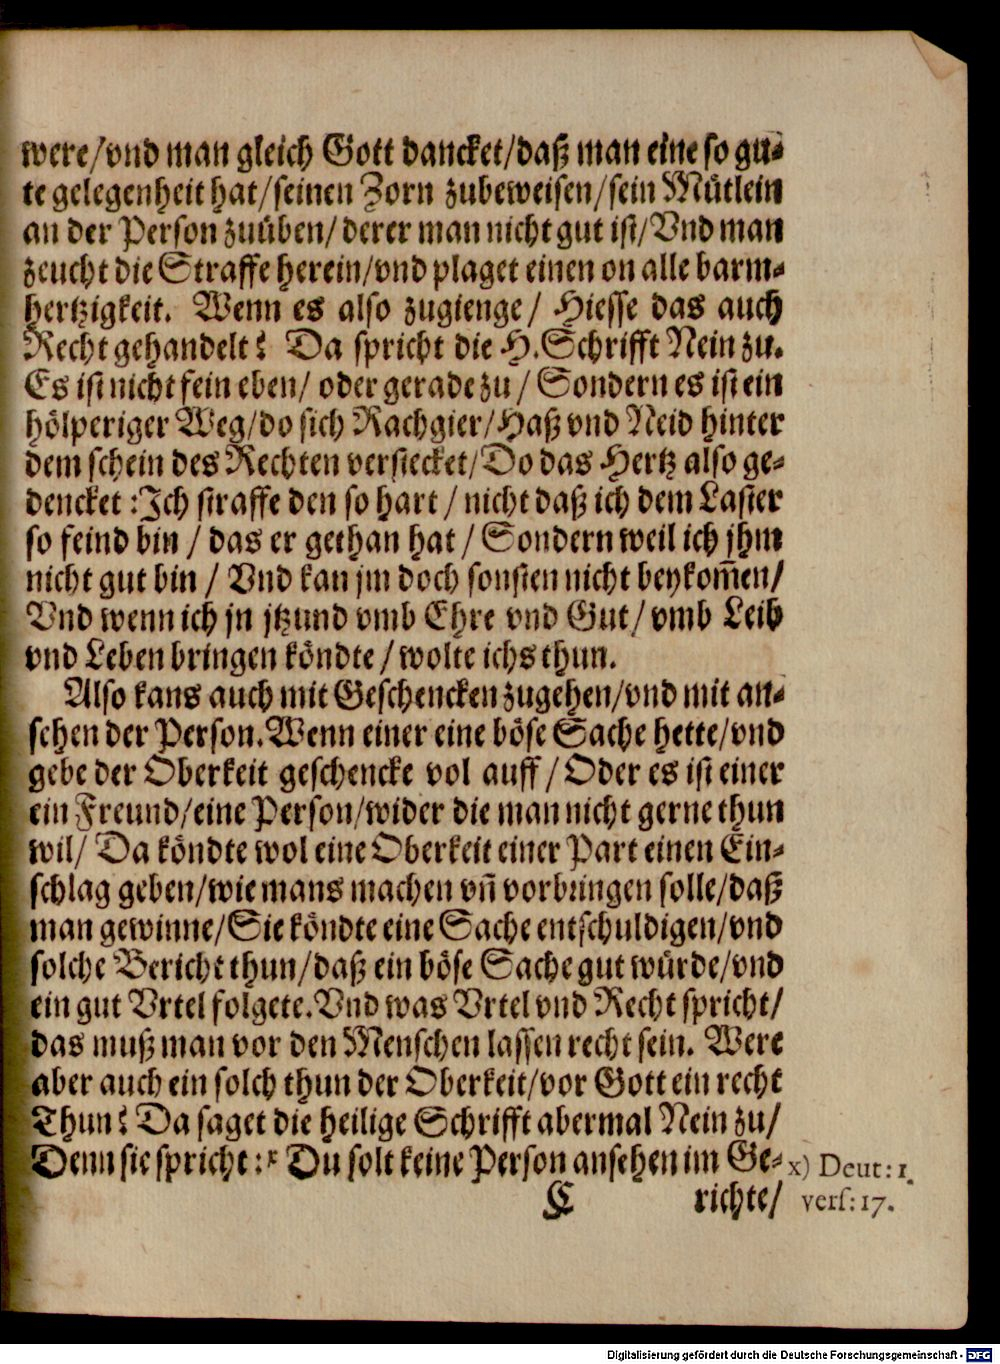 were/vnd man gleich Gott dancket/daß man eine so gu⸗
te gelegenheit hat/seinen Zorn zubeweisen/sein Mütlein
an der Person zuüben/ derer man nicht gut ist/Vnd man
zeucht die Straffe herein/vnd plaget einen on alle barm⸗
hertzigkeit. Wenn es also zugienge/ Hiesse das auch
Recht gehandelt? Da spricht die H.Schrifft Nein zu.
Es ist nicht fein eben/ oder gerade zu / Sondern es ist ein
hölperiger Weg/do sich Rachgier/Haß vnd Neid hinter
dem schein des Rechten verstecket/Do das Hertz also ge⸗
dencket :Ich straffe den so hart / nicht daß ich dem Laster
so feind bin / das er gethan hat / Sondern weil ich jhm
nicht gut bin / Vnd kan jm doch sonsten nicht beykom̃en/
Vnd wenn ich jn jtzund vmb Ehre vnd Gut/ vmb Leib
vnd Leben bringen köndte / wolte ichs thun.
Also kans auch mit Geschencken zugehen/vnd mit an⸗
sehen der Person.Wenn einer eine böse Sache hette/vnd
gebe der Oberkeit geschencke vol auff / Oder es ist einer
ein Freund/eine Person/wider die man nicht gerne thun
wil/ Da köndte wol eine Oberkeit einer Part einen Ein⸗
schlag geben/wie mans machen vñ vorbringen solle/daß
man gewinne/Sie köndte eine Sache entschuldigen/vnd
solche Bericht thun/daß ein böse Sache gut würde/vnd
ein gut Vrtel folgete.Vnd was Vrtel vnd Recht spricht/
das muß man vor den Menschen lassen recht sein. Were
aber auch ein solch thun der Oberkeit/vor Gott ein recht
Thun? Da saget die heilige Schrifft abermal Nein zu/
Denn sie spricht :x Du solt keine Person ansehen im Ge⸗
x) Deut: 1.
vers: 17.
C richte/
Digitalisierung gefördert durch die Deutsche Forschungsgemeinschaft - DFG